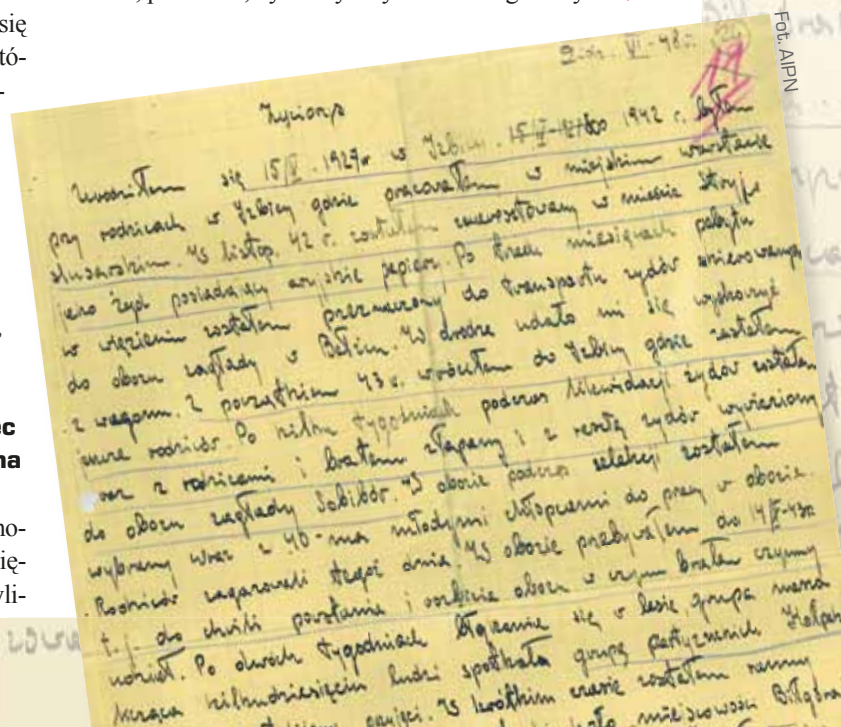 się
tó-
-
ec
na
no-
ię-
yli-
Fot. AIPN
VI-48r.
Życiorys
Urodziłem się 15/V. 1927r w Izbicy. do 1942 r. byłem
przy rodzicach w Izbicy gdzie pracowałem w miejskim warstacie
ślusarskim. W listop. 42 r. zostałem zaaresztowany w mieście Stryju
jako żyd posiadający aryjskie papiery. Po trzech miesiącach pobytu
w więzieniu zostałem przeznaczony do transportu żydów skierowanych
do obozu zagłady w Bełżcu. W drodze udało mi się wyskoczyć
z wagonu. Z początkiem 43 r. wróciłem do Izbicy gdzie zastałem
jeszcze rodziców. Po kilku tygodniach podczas likwidacji żydów zostałem
wraz z rodzicami i bratem złapany i z resztą żydów wywieziony
do obozu zagłady Sobibór. W obozie podczas selekcji zostałem
wybrany wraz z 40-ma młodymi chłopcami do pracy w obozie.
Rodziców zagazowali tegoż dnia. W obozie przebywałem do 14/X-43r.
t.j. do chwili powstania i rozbicia obozu w czym brałem czynny
udział. Po dwóch tygodniach błąkania się w lesie, grupa nasza
licząca kilkudziesięciu ludzi spotkała grupę partyzancką
W krótkim czasie zostałem ranny
miejscowości Biłgoraj